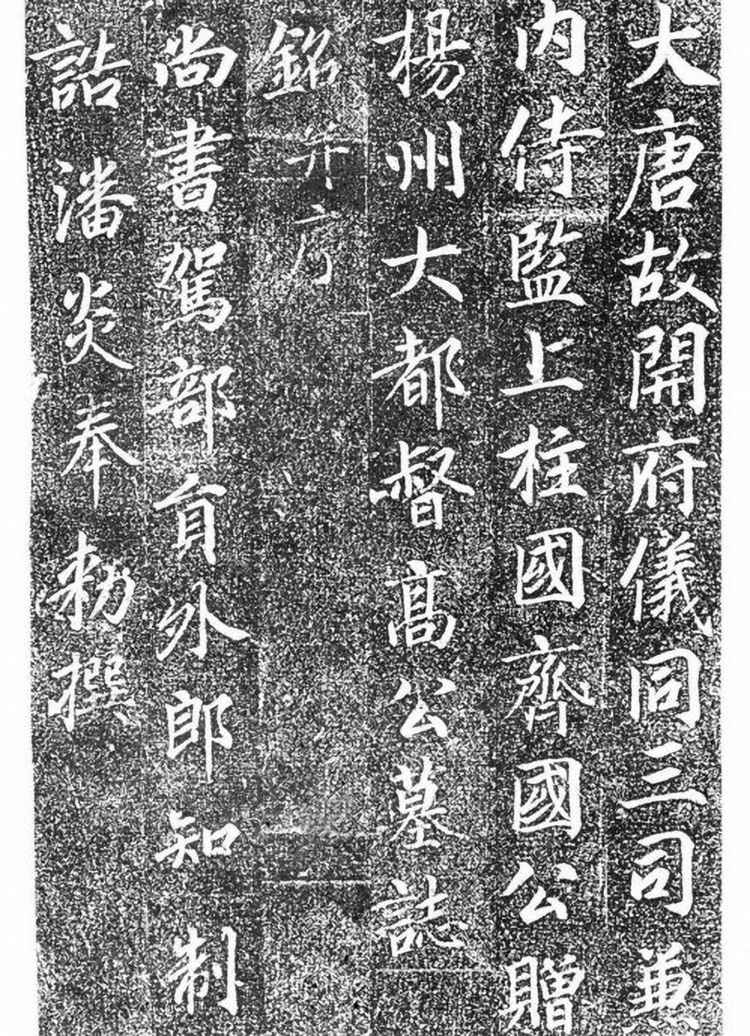 大唐故開府儀同三司兼
内侍監上柱國齊國公贈
楊州大都督高公墓誌
銘并序
尚書駕部員外郎知制
誥潘炎奉勅撰